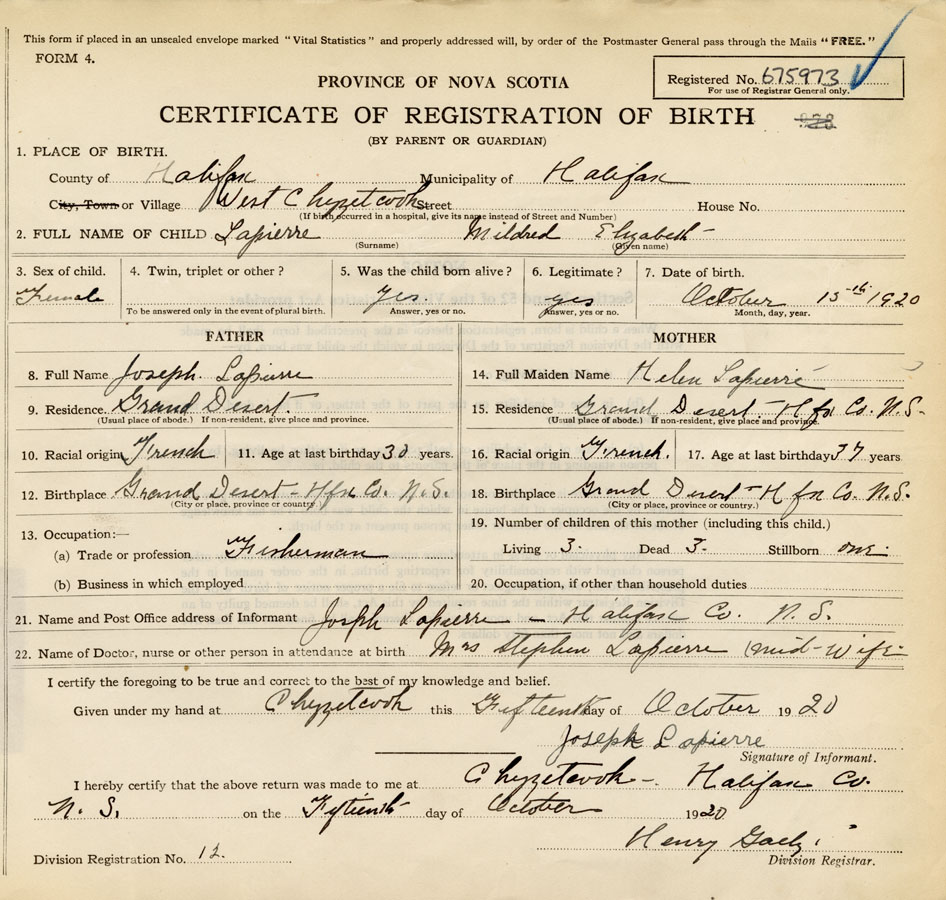 This form if placed in an unsealed envelope marked "Vital Statistics" and properly addressed will, by order of the Postmaster General pass through the Mails "FREE."
FORM 4.
PROVINCE OF NOVA SCOTIA
Registered No. 675973
For use of Registrar General only.
CERTIFICATE OF REGISTRATION OF BIRTH
(BY PARENT OR GUARDIAN)
1. PLACE OF BIRTH.
County of Halifax Municipality of Halifax
City, Town or Village West Chezetcook Street House No.
(If birth occurred in a hospital, give its name instead of Street and Number)
2. FULL NAME OF CHILD Lapierre Mildred Elizabeth
(Surname) (Given name)
3. Sex of child. 4. Twin, triplet or other? 5. Was the child born alive? 6. Legitimate? 7. Date of birth.
Female yes yes October 15th 1920
To be answered only in the event of plural birth. Answer, yes or no. Answer, yes or no. Month, day, year.
FATHER MOTHER
8. Full Name Joseph Lapierre 14. Full Maiden Name Helen Lapierre
9. Residence. Grand Desert. 15. Residence Grand Desert - Hfx Co. N.S.
(Usual place of abode.) If non-resident, give place and province. (Usual place of abode.) If non-resident, give place and province.
10. Racial origin French 11. Age at last birthday years. 16. Racial origin French. 17. Age at last birthday 37 years
12. Birthplace Grand Desert - Hfx Co. N.S. 18. Birthplace Grand Desert - Hfx Co. N.S.
(City or place, province or country.) (City or place, province or country.)
13. Occupation:— 19. Number of children of this mother (including this child.)
(a) Trade or profession Fisherman Living 3. Dead 3. Stillborn one
(b) Business in which employed 20. Occupation, if other than household duties
21. Name and Post Office address of Informant Joseph Lapierre - Halifax Co. N.S.
22. Name of Doctor, nurse or other person in attendance at birth Mrs Stephen Lapierre (mid-wife
I certify the foregoing to be true and correct to the best of my knowledge and belief.
Given under my hand at Chezetcook this Fifteenth day of October 1920
Joseph Lapierre
Signature of Informant.
I hereby certify that the above return was made to me at Chezetcook - Halifax Co.
N.S. on the Fifteenth day of October 1920
Henry
Division Registration No. 12. Division Registrar.